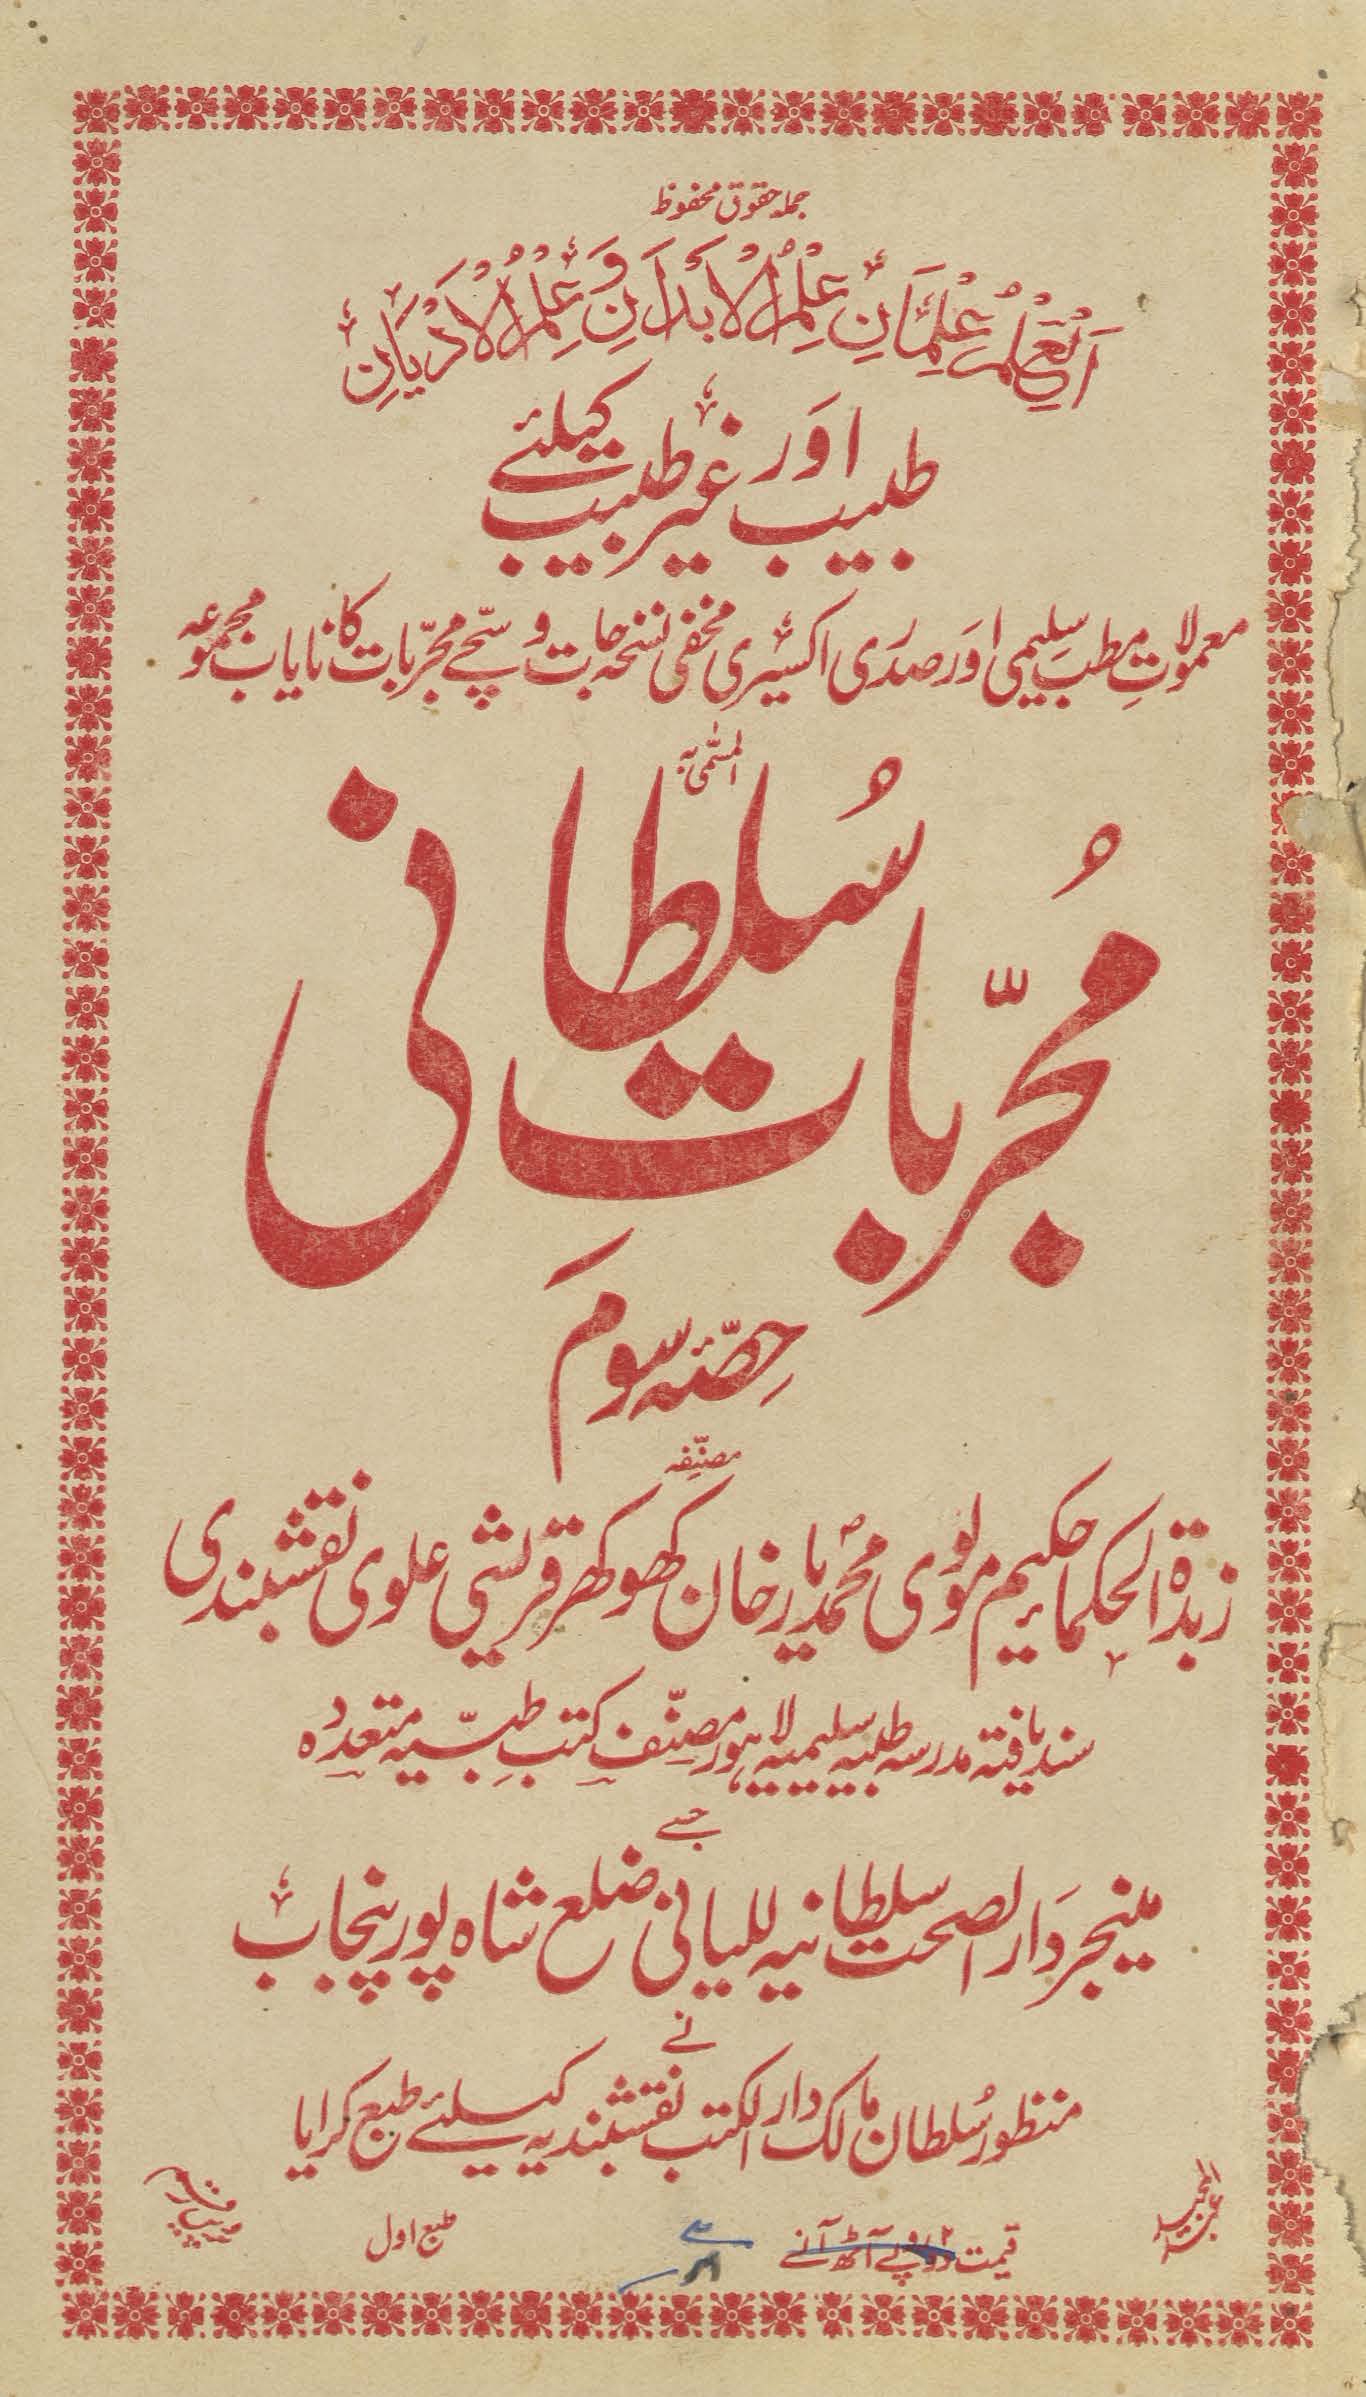 جملہ حقوق محفوظ
اَلْعِلْمُ عِلْمَانِ عِلْمُ الْاَبْدَانِ وَ عِلْمُ الْاَدْيَانِ
طبیب اور غیر طبیب کیلئے
معمولاتِ مطب سلیمی اور صدری اکسیری مخفی نسخہ جات و سچے مجرّبات کا نایاب مجموعہ
المسمّٰی بہ
مُجرّبات سُلطانی
حِصّہ سوم
مصنّفہ
زبدۃ الحکما حکیم مولوی محمد یار خان کھوکھر قریشی علوی نقشبندی
سند یافتہ مدرسہ طبیہ سلیمیہ لاہور مصنّف کتب طبّیہ متعددہ
جسے
مینجر دار الصحت سلطانیہ للیانی ضلع شاہ پور پنجاب
نے
منظور سُلطان مالک دار الکتب نقشبندیہ کیلئے طبع کرایا
قیمت دو روپے آٹھ آنے
طبع اول
عبد المجید